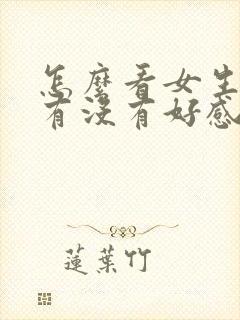 怎麼看女生
有沒有好感
蓮葉竹